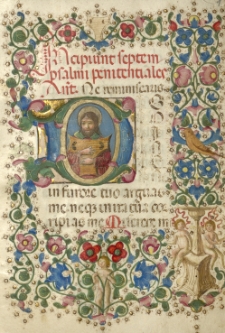 Incipiunt septem
psalmi penitentiales
Ant. Ne reminiscaris
D
in furore tuo arguas
me neq; in ira tua cor
ripias me Miserere m